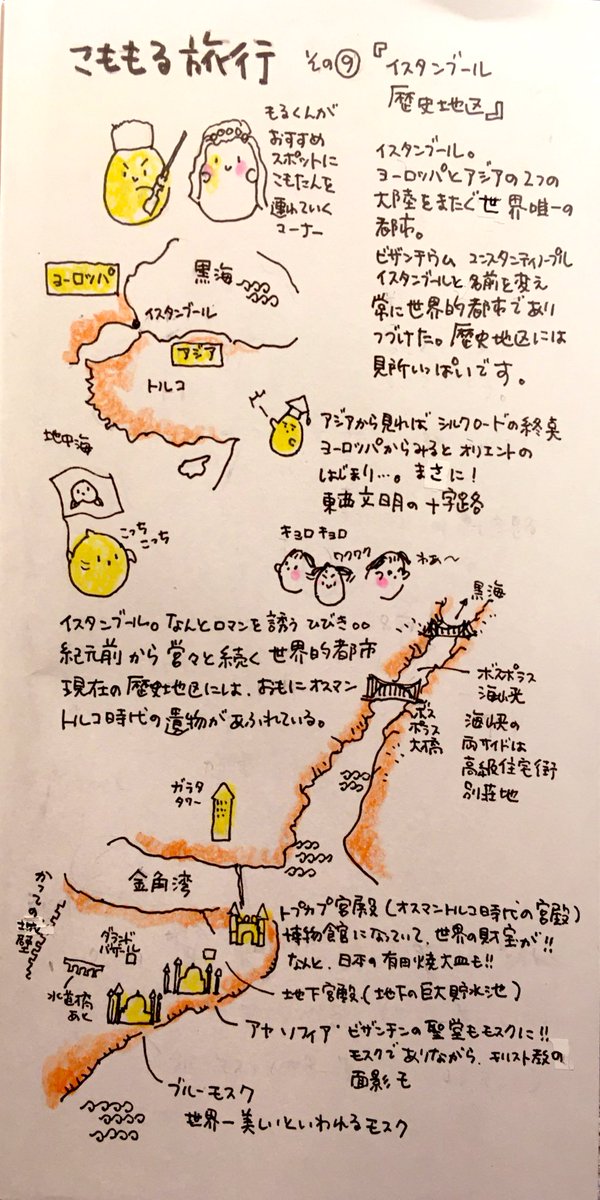 こももる旅行 その⑨『イスタンブール
歴史地区』
もるくんが
おすすめ
スポットに
こもたんを
連れていく
コーナー
イスタンブール。
ヨーロッパとアジアの2つの
大陸をまたぐ世界唯一の
都市。
ビザンチウム コンスタンティノープル
イスタンブールと名前を変え
常に世界的都市であり
つづけた。歴史地区には
見所いっぱいです。
ヨーロッパ
黒海
イスタンブール
アジア
トルコ
地中海
アジアから見ればシルクロードの終点
ヨーロッパからみるとオリエントの
はじまり…。まさに!
東西文明の十字路
こっち
こっち
キョロキョロ
ワクワク
わぁ〜
イスタンブール。なんとロマンを誘うひびき。。
紀元前から営々と続く世界的都市
現在の歴史地区には、おもにオスマン
トルコ時代の遺物があふれている。
黒海
ボスポラス
海峡
ボス
ポラス
大橋
海峡の
両サイドは
高級住宅街
別荘地
ガラタ
タワー
金角湾
かつての
城壁
グランド
バザール
水道橋
あと
トプカプ宮殿(オスマントルコ時代の宮殿)
博物館になっていて、世界の財宝が!!
なんと、日本の有田焼大皿も!!
地下宮殿(地下の巨大貯水池)
アヤソフィア・ビザンチンの聖堂もモスクに!!
モスクでありながら、キリスト教の
面影も
ブルーモスク
世界一美しいといわれるモスク